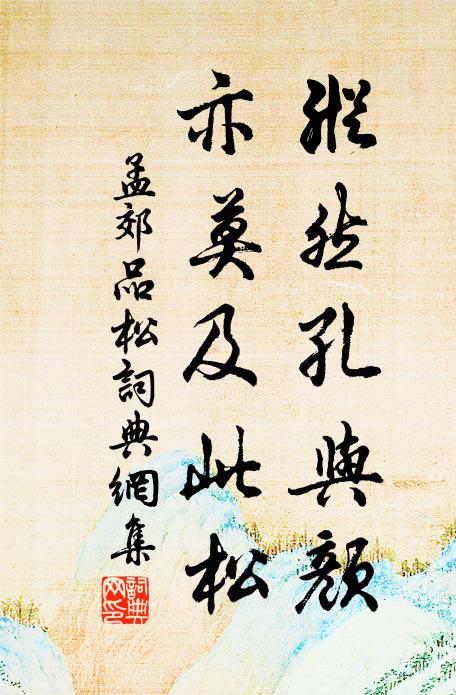 縱然孔與顏
亦莫及此松
孟郊品松詞典網集
詞典网印